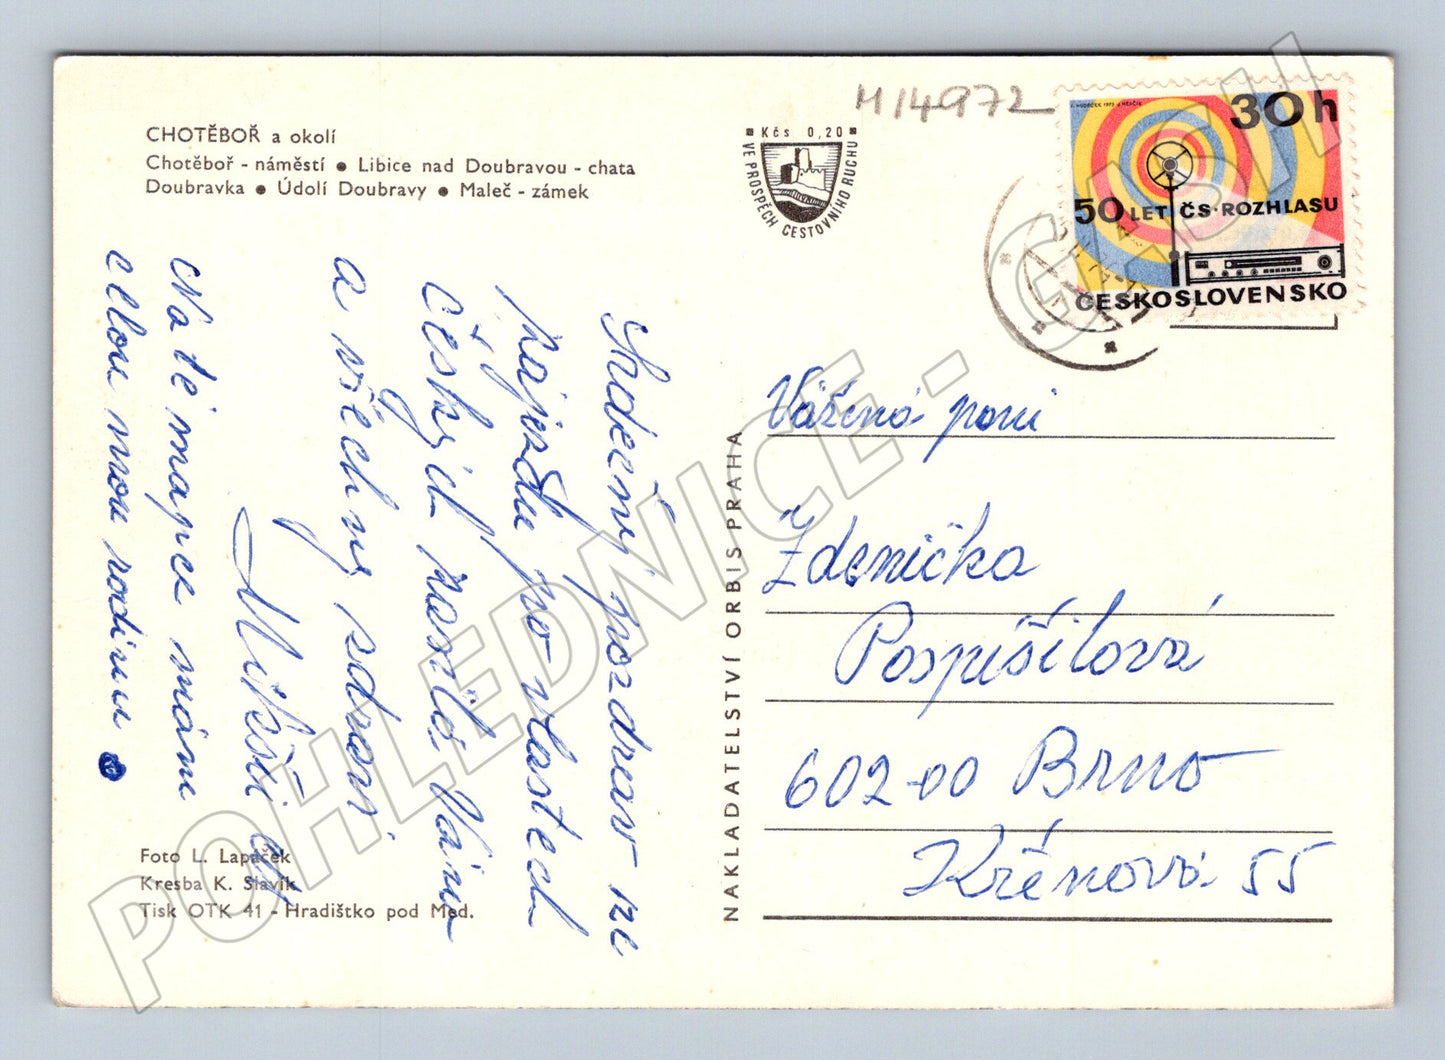 M14972
CHOTĚBOŘ a okolí
Chotěboř - náměstí ● Libice nad Doubravou - chata
Doubravka ● Údolí Doubravy ● Maleč - zámek
Kčs 0,20
VE PROSPĚCH CESTOVNÍHO RUCHU
J. HUDEČEK 1973 J. HERČÍK
30 h
50 LET ČS. ROZHLASU
ČESKOSLOVENSKO
Srdečný pozdrav ze
zájezdu po vlastech
Českých posílá Vám
a všechny zdraví
Mikšíčet
Na té mapce mám
celou mou rodinu
Vážená paní
Zdenička
Pospíšilová
602 00 Brno
Křenová 55
NAKLADATELSTVÍ ORBIS PRAHA
Foto L. Lapáček
Kresba K. Slavík
Tisk OTK 41 - Hradištko pod Med.
POHLEDNICE - GASH